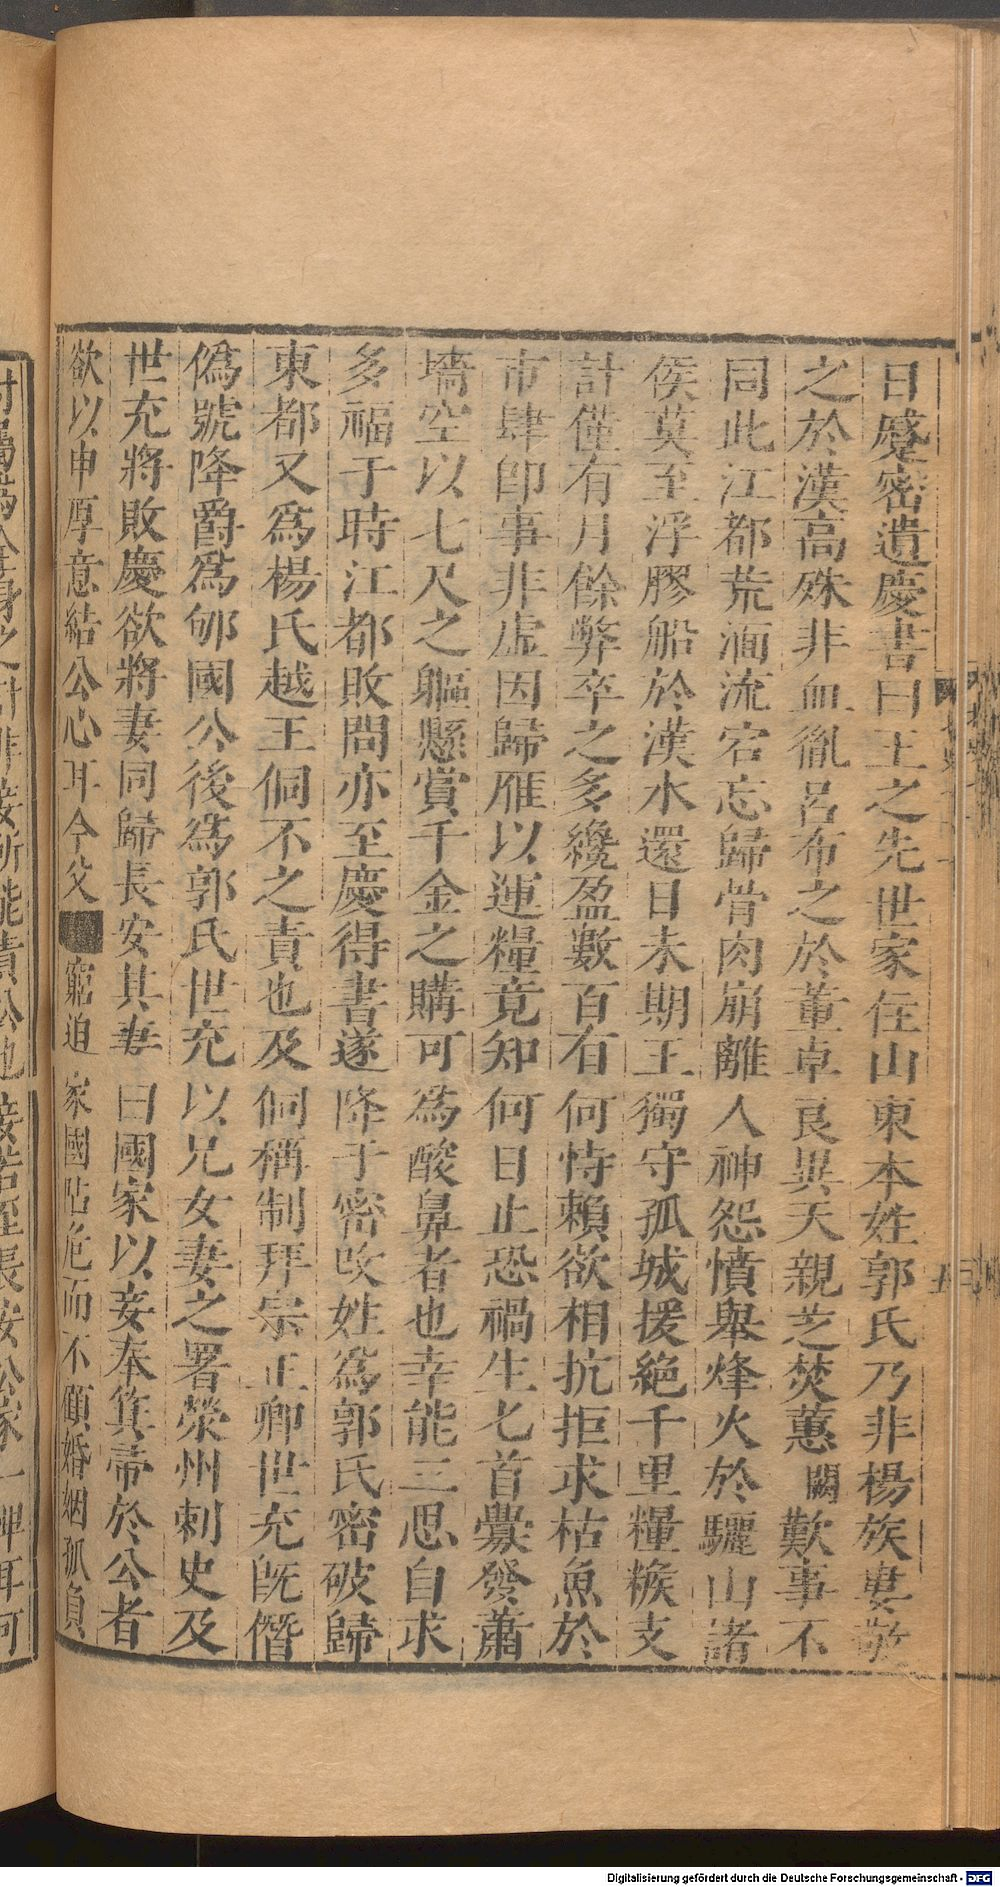 日蹙密遺慶書曰王之先世家住山東本姓郭氏乃非楊族婁敬
之於漢高殊非血胤呂布之於董卓良異天親芝焚蕙闕歎事不
同此江都荒湎流宕忘歸骨肉崩離人神怨憤舉烽火於驪山諸
侯莫至浮膠船於漢水還日未期王獨守孤城援絕千里糧糇支
計僅有月餘弊卒之多纔盈數百有何恃賴欲相抗拒求枯魚於
市肆卽事非虛因歸雁以運糧竟知何日止恐禍生匕首釁發蕭
墻空以七尺之軀懸賞千金之購可爲酸鼻者也幸能三思自求
多福于時江都敗問亦至慶得書遂降于密改姓爲郭氏密破歸
東都又爲楊氏越王侗不之責也及侗稱制拜宗正卿世充旣僭
僞號降爵爲郇國公後爲郭氏世充以兄女妻之署滎州刺史及
世充將敗慶欲將妻同歸長安其妻曰國家以妾奉箕帚於公者
欲以申厚意結公心耳今父窮迫家國阽危而不顧婚姻孤負
Digitalisierung gefördert durch die Deutsche Forschungsgemeinschaft - DFG